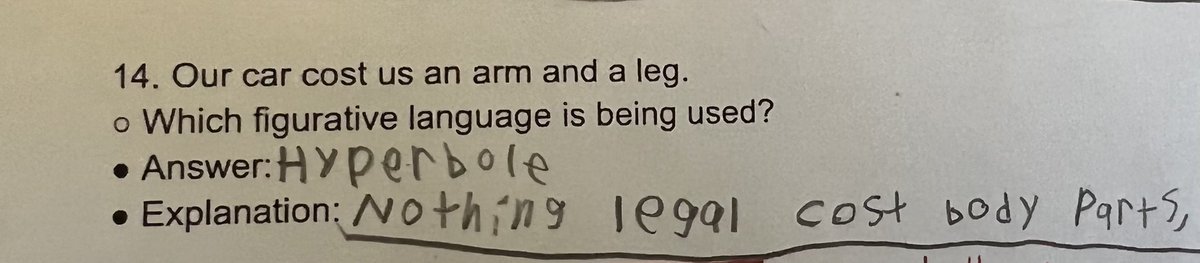 14. Our car cost us an arm and a leg.
o Which figurative language is being used?
• Answer: Hyperbole
• Explanation: Nothing legal cost body parts,